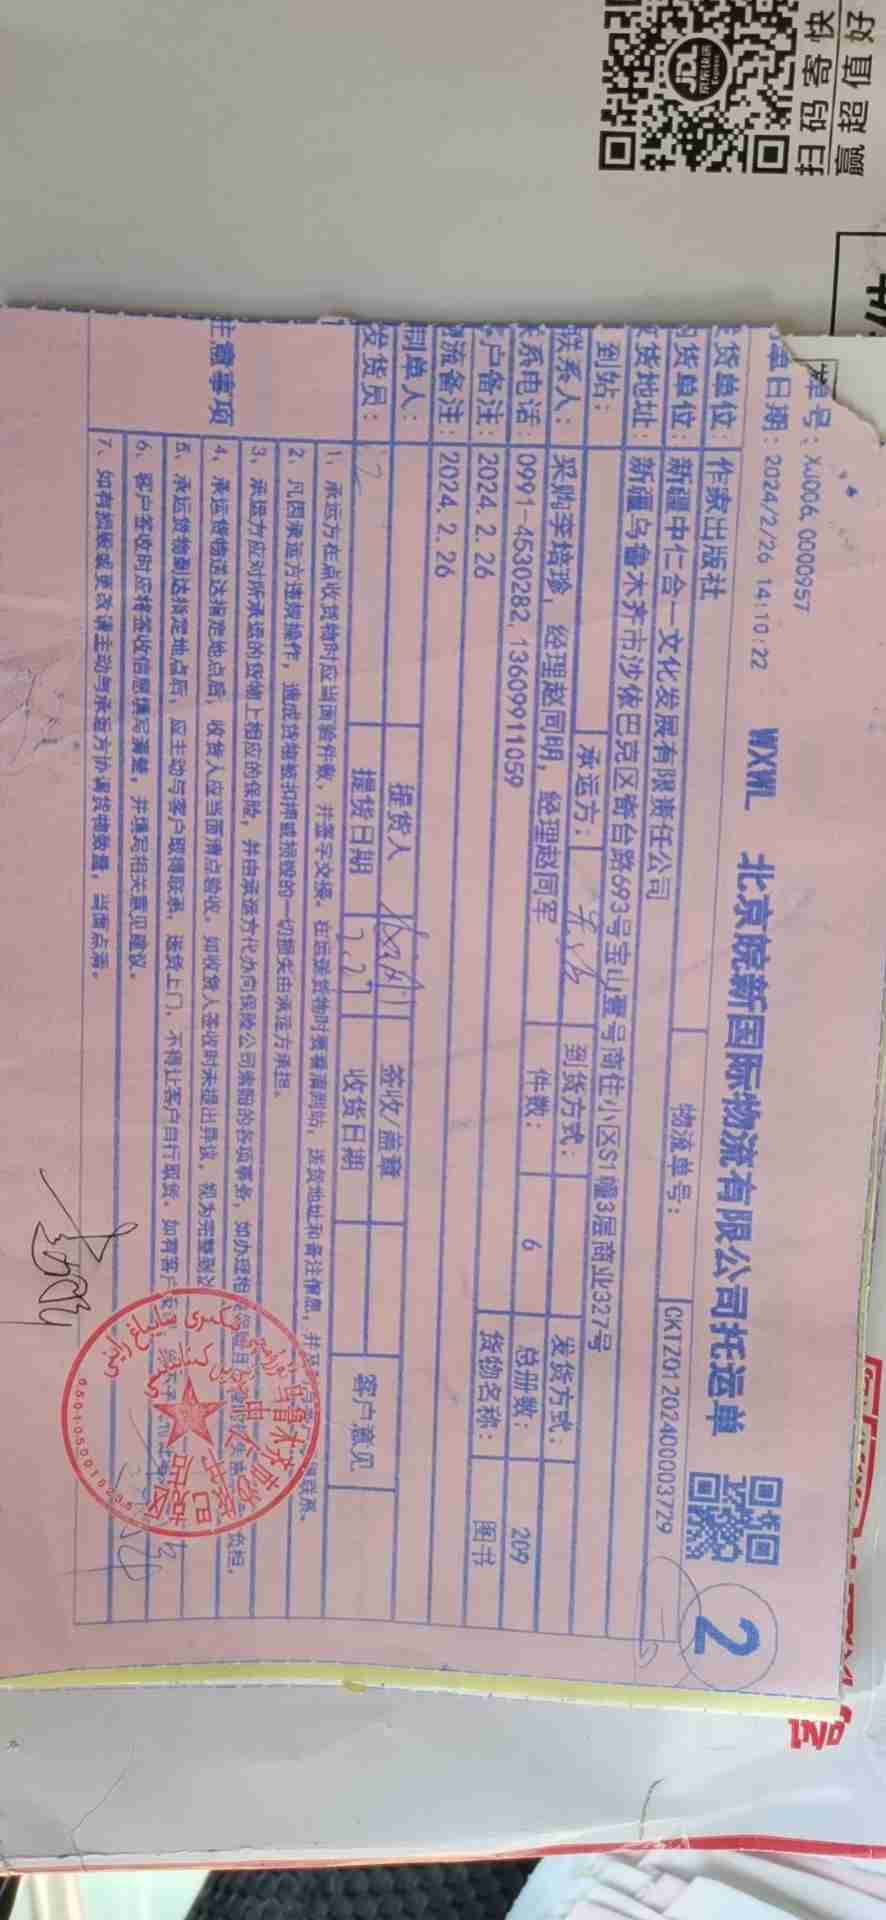 扫码寄快
赢超值好
JDL
京东快递
Express
件
单号：XJ006.0000957
单日期：2024/2/26 14:10:22
WXWL 北京皖新国际物流有限公司托运单
2
发货单位：作家出版社
物流单号：CKTZ01202400003729
收货单位：新疆中仁合一文化发展有限责任公司
收货地址：新疆乌鲁木齐市沙依巴克区奇台路693号宝山壹号商住小区S1幢3层商业327号
到站： 承运方： 到货方式： 发货方式：
联系人：采购李培珍，经理赵同明，经理赵同军 件数：6 总册数：209
联系电话：0991-4530282,13609911059 货物名称：图书
客户备注：2024.2.26
物流备注：2024.2.26
制单人： 提货人 签收/盖章 客户意见
发货员： 提货日期 2.27 收货日期
注意事项
1、承运方在点收货物时应当面验件数，并签字交接。在运送货物时要看清到站，送货地址和备注信息，并及 联系。
2、凡因承运方违规操作，造成货物被扣押或损毁的一切损失由承运方承担。
3、承运方应对所承运的货物上相应的保险，并由承运方代办向保险公司索赔的各项事务，如办理相 负担。
4、承运货物送达指定地点后，收货人应当面清点验收，如收货人签收时未提出异议，视为完整到达
5、承运货物到达指定地点后，应主动与客户取得联系，送货上门，不得让客户自行取货。如有客户
6、客户签收时应将签收信息填写清楚，并填写相关意见建议。
7、如有损破或更改请主动与承运方协调货物数量，当面点清。
乌鲁木齐市沙依巴克区